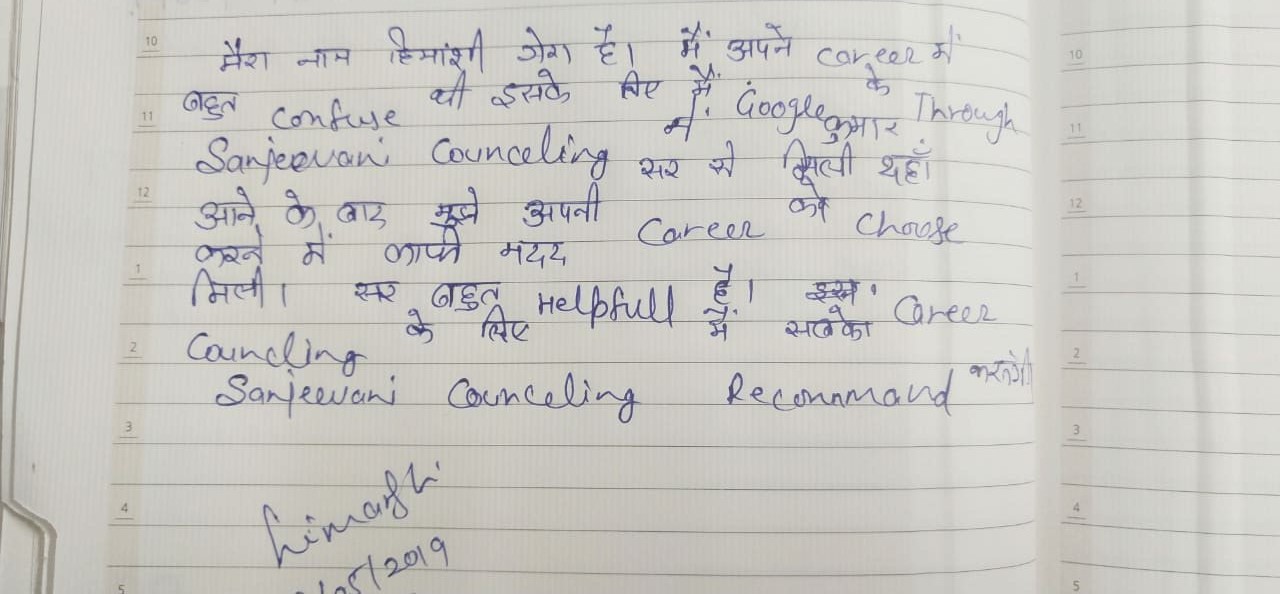 10
मेरा नाम हिमांशी गेरा है। मैं अपने career में
11 बहुत confuse थी इसके लिए मैं ने Google के Through
Sanjeevani Counceling कुमार सर से मिली यहाँ
12 आने के बाद मुझे अपनी Career को choose
करने में काफी मदद
1 मिली। सर बहुत Helpfull है। Career
2 Councling के लिए में सबको
Sanjeevani Counceling Recommand करूंगी
3
4 himanshi
/05/2019
5
10
11
12
1
2
3
4
5